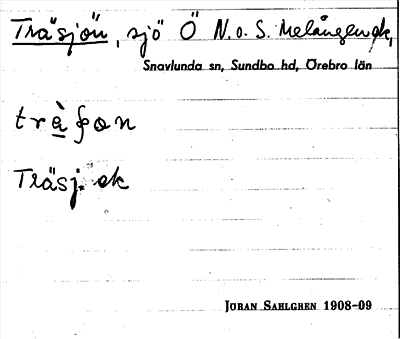 Träsjön, sjö Ö N. o. S. Melången, ek,
Snavlunda sn, Sundbo hd, Örebro län
Träsj. ek
JÖRAN SAHLGREN 1908-09